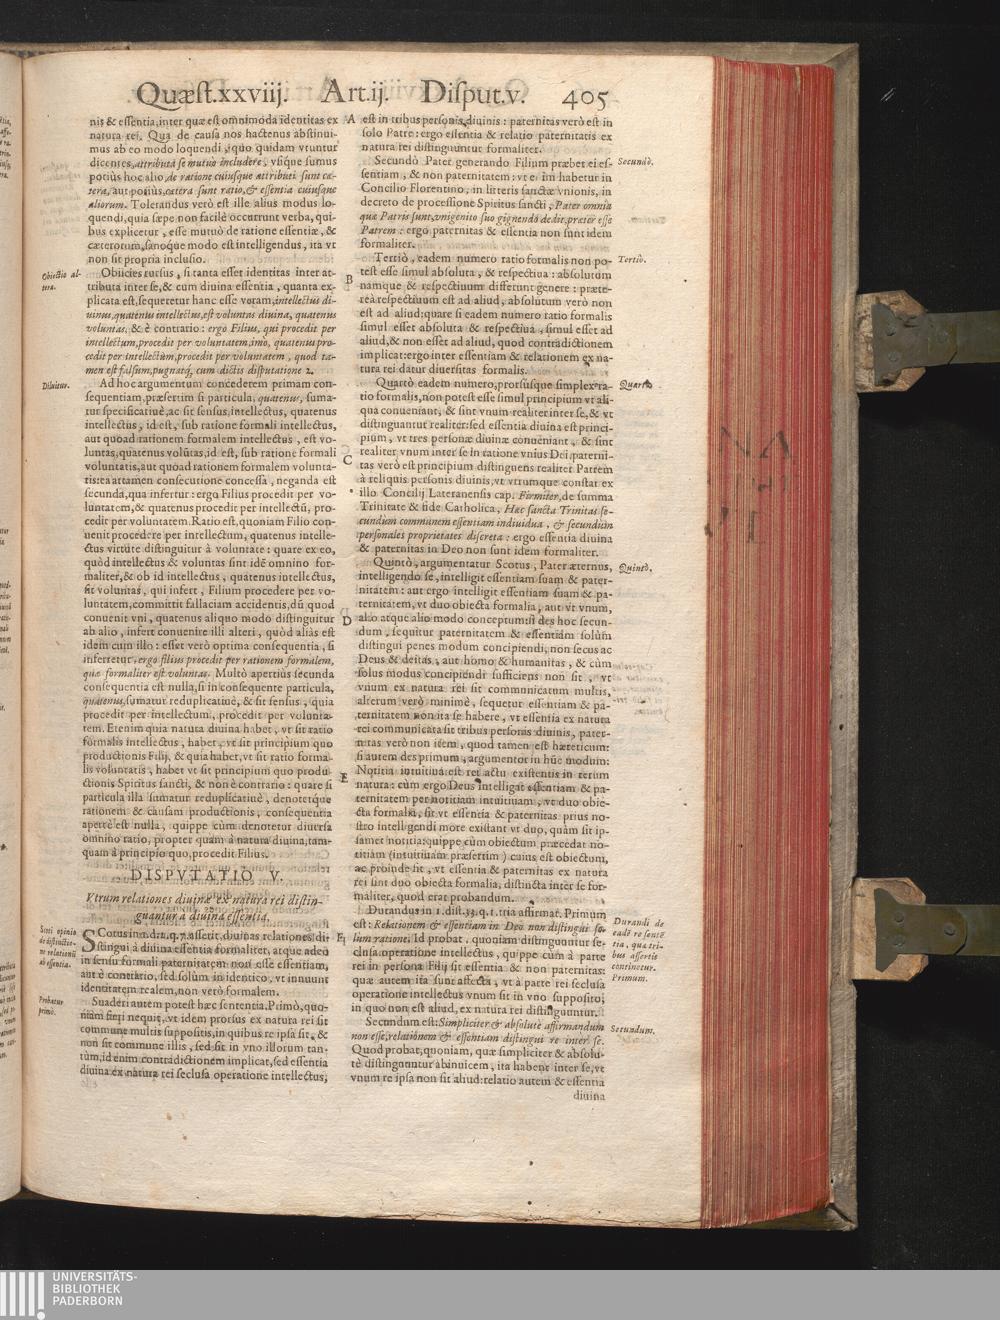 Quæst.xxviij. Art.ij. Disput.v. 405
nis & essentia,inter quæ est omnimoda identitas ex
natura rei. Qua de causa nos hactenus abstinui-
mus ab eo modo loquendi, quo quidam vtuntur
dicentes,attributa se mutuò includere, vsique sumus
potiùs hoc alio,de ratione cuiusque attributi sunt cæ-
tera, aut potiùs,cætera sunt ratio,& essentia cuiusque
aliorum. Tolerandus verò est ille alius modus lo-
quendi,quia sæpe non facilè occurrunt verba, qui-
bus explicetur, esse mutuò de ratione essentiæ, &
cæterorum,sanoque modo est intelligendus, ita vt
non sit propria inclusio.
Obiectio al-
tera.
Obiicies rursus, si tanta esset identitas inter at-
tributa inter se,& cum diuina essentia, quanta ex-
plicata est,sequeretur hanc esse veram,intellectus di-
uinus,quatenus intellectus,est voluntas diuina, quatenus
voluntas, & è contrario: ergo Filius, qui procedit per
intellectum,procedit per voluntatem,imò, quatenus pro-
cedit per intellectum,procedit per voluntatem, quod ta-
men est falsum,pugnatq; cum dictis disputatione 2.
Diluitur.
Ad hoc argumentum concederem primam con-
sequentiam,præsertim si particula, quatenus, suma-
tur specificatiuè,ac sit sensus,intellectus, quatenus
intellectus, id est, sub ratione formali intellectus,
aut quoad rationem formalem intellectus, est vo-
luntas,quatenus volūtas,id est, sub ratione formali
voluntatis,aut quoad rationem formalem volunta-
tis:ea attamen consecutione concessa, neganda est
secunda,qua infertur: ergo Filius procedit per vo-
luntatem,& quatenus procedit per intellectū, pro-
cedit per voluntatem. Ratio est,quoniam Filio con-
uenit procedere per intellectum, quatenus intelle-
ctus virtute distinguitur à voluntate: quare ex eo,
quòd intellectus & voluntas sint idē omnino for-
maliter,& ob id intellectus, quatenus intellectus,
sit voluntas, qui infert, Filium procedere per vo-
luntatem,committit fallaciam accidentis,dū quod
conuenit vni, quatenus aliquo modo distinguitur
ab alio, infert conuenire illi alteri, quòd aliàs est
idem cum illo: esset verò optima consequentia, si
inferretur, ergo filius procedit per rationem formalem,
quæ formaliter est voluntas. Multò apertiùs secunda
consequentia est nulla,si in consequente particula,
quatenus,sumatur reduplicatiuè, & sit sensus, quia
procedit per intellectum, procedit per volunta-
tem. Etenim quia natura diuina habet, vt sit ratio
formalis intellectus, habet, vt sit principium quo
productionis Filij, & quia habet,vt sit ratio forma-
lis voluntatis, habet vt sit principium quo produ-
ctionis Spiritus sancti, & non è contrario: quare si
particula illa sumatur reduplicatiuè, denotetque
rationem & causam productionis, consequentia
apertè est nulla, quippe cùm denotetur diuersa
omnino ratio, propter quam à natura diuina,tam-
quam à principio quo,procedit Filius.
DISPVTATIO V.
Vtrum relationes diuinæ ex natura rei distin-
guantur à diuina essentia.
Scoti opinio
de distinctio-
ne relationū
ab essentia.
SCotus in 1.d.2.q.7.asserit,diuinas relationes di-
stingui à diuina essentia formaliter, atque adeo
in sensu formali paternitatem non esse essentiam,
aut è contrario,sed solùm in identico, vt innuunt
identitatem realem,non verò formalem.
Probatur
primò.
Suaderi autem potest hæc sententia. Primò,quo-
niam fieri nequit, vt idem prorsus ex natura rei sit
commune multis suppositis,in quibus re ipsa sit, &
non sit commune illis, sed sit in vno illorum tan-
tùm,id enim contradictionem implicat,sed essentia
diuina ex natura rei seclusa operatione intellectus,
A
B
C
D
E
F
est in tribus personis diuinis: paternitas verò est in
solo Patre: ergo essentia & relatio paternitatis ex
natura rei distinguuntur formaliter.
Secundò.
Secundò Pater generando Filium præbet ei es-
sentiam, & non paternitatem: vt enim habetur in
Concilio Florentino, in litteris sanctæ vnionis, in
decreto de processione Spiritus sancti, Pater omnia
quæ Patris sunt,vnigenito suo gignendo dedit,præter esse
Patrem: ergo paternitas & essentia non sunt idem
formaliter.
Tertiò.
Tertiò, eadem numero ratio formalis non po-
test esse simul absoluta, & respectiua: absolutum
namque & respectiuum differunt genere: præte-
reà respectiuum est ad aliud, absolutum verò non
est ad aliud:quare si eadem numero ratio formalis
simul esset absoluta & respectiua, simul esset ad
aliud,& non esset ad aliud, quod contradictionem
implicat:ergo inter essentiam & relationem ex na-
tura rei datur diuersitas formalis.
Quartò
Quartò eadem numero,prorsusque simplex ra-
tio formalis,non potest esse simul principium vt ali-
qua conueniant, & sint vnum realiter inter se,& vt
distinguantur realiter:sed essentia diuina est princi-
pium, vt tres personæ diuinæ conueniant, & sint
realiter vnum inter se in ratione vnius Dei,paterni-
tas verò est principium distinguens realiter Patrem
à reliquis personis diuinis,vt vtrumque constat ex
illo Concilij Lateranensis cap. Firmiter,de summa
Trinitate & fide Catholica, Hæc sancta Trinitas se-
cundùm communem essentiam indiuidua, & secundùm
personales proprietates discreta: ergo essentia diuina
& paternitas in Deo non sunt idem formaliter.
Quintò.
Quintò, argumentatur Scotus, Pater æternus,
intelligendo se, intelligit essentiam suam & pater-
nitatem: aut ergo intelligit essentiam suam & pa-
ternitatem, vt duo obiecta formalia, aut vt vnum,
alio atque alio modo conceptum:si des hoc secun-
dum, sequitur paternitatem & essentiam solùm
distingui penes modum concipiendi,non secus ac
Deus & deitas, aut homo & humanitas, & cùm
solus modus concipiendi sufficiens non sit, vt
vnum ex natura rei sit communicatum multis,
alterum verò minimè, sequetur essentiam & pa-
ternitatem non ita se habere, vt essentia ex natura
rei communicata sit tribus personis diuinis, pater-
nitas verò non item, quod tamen est hæreticum:
si autem des primum, argumentor in hūc modum:
Notitia intuitiua est rei actu existentis in rerum
natura: cùm ergo Deus intelligat essentiam & pa-
ternitatem per notitiam intuitiuam, vt duo obie-
cta formalia, sit vt essentia & paternitas prius no-
stro intelligendi more existant vt duo, quàm sit ip-
samet notitia:quippe cùm obiectum præcedat no-
titiam (intuitiuam præsertim) cuius est obiectum,
ac proinde fit, vt essentia & paternitas ex natura
rei sint duo obiecta formalia, distincta inter se for-
maliter, quod erat probandum.
Durandi de
eadē re sentē
tia, qua tri-
bus assertis
continetur.
Primum.
Durandus in 1.dist.33.q.1.tria affirmat. Primum
est: Relationem & essentiam in Deo non distingui so-
lùm ratione. Id probat, quoniam distinguuntur se-
clusa operatione intellectus, quippe cùm à parte
rei in persona Filij sit essentia & non paternitas:
quæ autem ita sunt affecta, vt à parte rei seclusa
operatione intellectus vnum sit in vno supposito,
in quo non est aliud, ex natura rei distinguuntur.
Secundum.
Secundum est: Simpliciter & absolutè affirmandum
non esse,relationem & essentiam distingui re inter se.
Quod probat,quoniam, quæ simpliciter & absolu-
tè distinguuntur abinuicem, ita habent inter se,vt
vnum re ipsa non sit aliud:relatio autem & essentia
diuina
UNIVERSITÄTS-
BIBLIOTHEK
PADERBORN